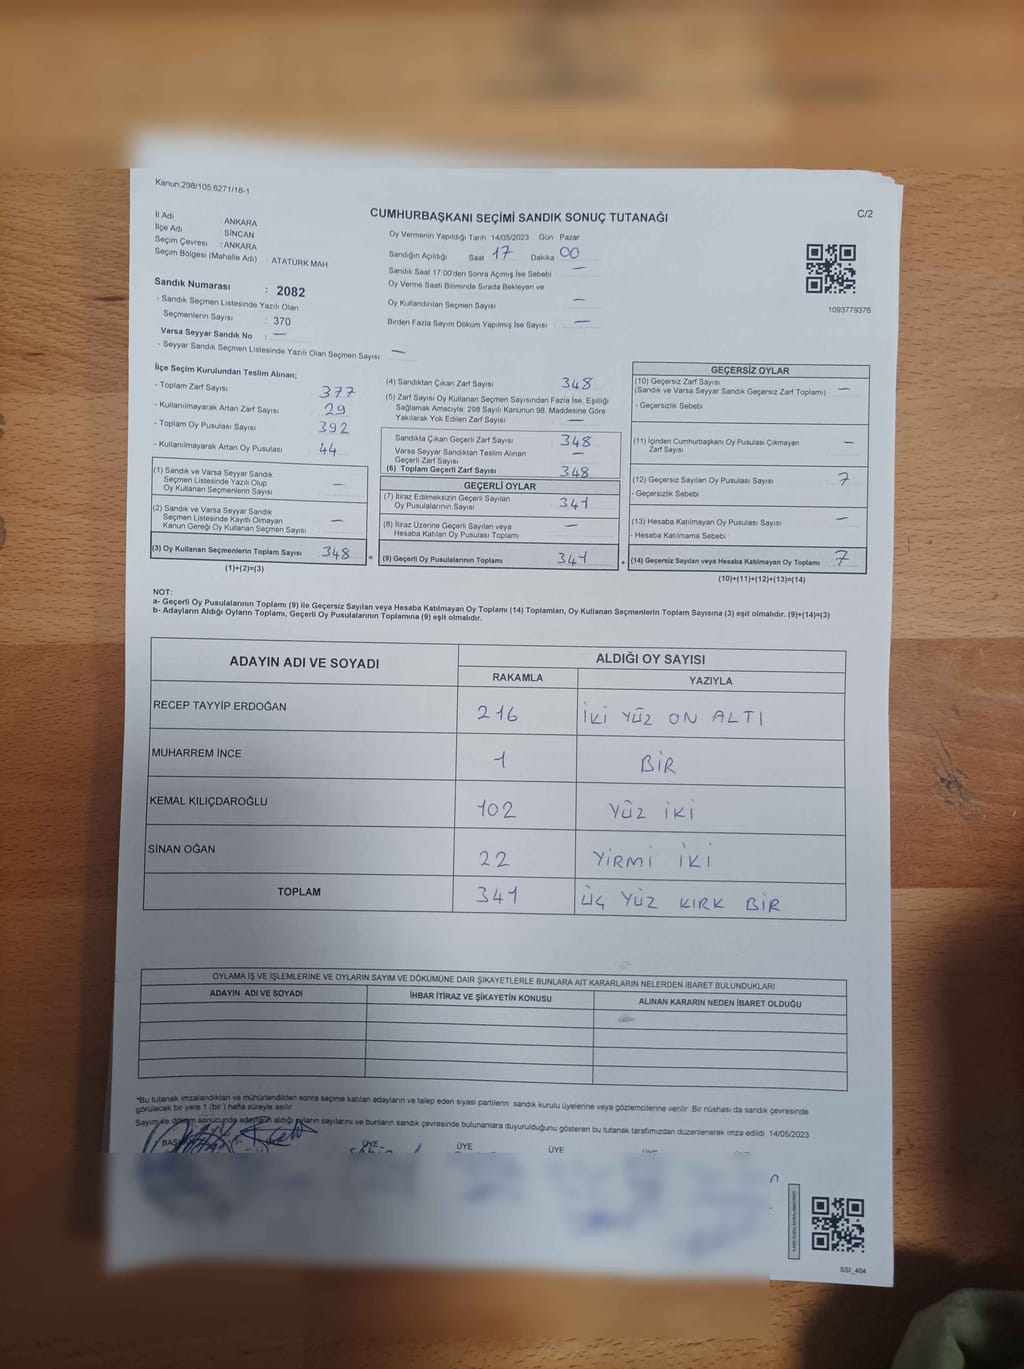 Kanun:298/105,6271/18-1
C/2
CUMHURBAŞKANI SEÇİMİ SANDIK SONUÇ TUTANAĞI
İl Adı : ANKARA
İlçe Adı : SİNCAN
Seçim Çevresi : ANKARA
Seçim Bölgesi (Mahalle Adı) ATATÜRK MAH
Sandık Numarası : 2082
- Sandık Seçmen Listesinde Yazılı Olan
Seçmenlerin Sayısı : 370
Varsa Seyyar Sandık No : —
- Seyyar Sandık Seçmen Listesinde Yazılı Olan Seçmen Sayısı: —
Oy Vermenin Yapıldığı Tarih 14/05/2023 Gün Pazar
Sandığın Açıldığı Saat 17 Dakika 00
Sandık Saat 17.00'den Sonra Açımış İse Sebebi —
Oy Verme Saati Bitiminde Sırada Bekleyen ve
Oy Kullandırılan Seçmen Sayısı —
Birden Fazla Sayım Döküm Yapılmış İse Sayısı —
1093779376
İlçe Seçim Kurulundan Teslim Alınan;
- Toplam Zarf Sayısı 377
- Kullanılmayarak Artan Zarf Sayısı 29
- Toplam Oy Pusulası Sayısı 392
- Kullanılmayarak Artan Oy Pusulası 44
(1) Sandık ve Varsa Seyyar Sandık
Seçmen Listesinde Yazılı Olup
Oy Kullanan Seçmenlerin Sayısı —
(2) Sandık ve Varsa Seyyar Sandık
Seçmen Listesinde Kayıtlı Olmayan
Kanun Gereği Oy Kullanan Seçmen Sayısı —
(3) Oy Kullanan Seçmenlerin Toplam Sayısı 348
(1)+(2)=(3)
=
(4) Sandıktan Çıkan Zarf Sayısı 348
(5) Zarf Sayısı Oy Kullanan Seçmen Sayısından Fazla İse, Eşitliği
Sağlamak Amacıyla; 298 Sayılı Kanunun 98. Maddesine Göre
Yakılarak Yok Edilen Zarf Sayısı —
Sandıkta Çıkan Geçerli Zarf Sayısı 348
Varsa Seyyar Sandıktan Teslim Alınan
Geçerli Zarf Sayısı —
(6) Toplam Geçerli Zarf Sayısı 348
GEÇERLİ OYLAR
(7) İtiraz Edilmeksizin Geçerli Sayılan
Oy Pusulalarının Sayısı 341
(8) İtiraz Üzerine Geçerli Sayılan veya
Hesaba Katılan Oy Pusulası Toplamı —
(9) Geçerli Oy Pusulalarının Toplamı 341
+
GEÇERSİZ OYLAR
(10) Geçersiz Zarf Sayısı
(Sandık ve Varsa Seyyar Sandık Geçersiz Zarf Toplamı) —
- Geçersizlik Sebebi
(11) İçinden Cumhurbaşkanı Oy Pusulası Çıkmayan
Zarf Sayısı —
(12) Geçersiz Sayılan Oy Pusulası Sayısı 7
- Geçersizlik Sebebi
(13) Hesaba Katılmayan Oy Pusulası Sayısı —
- Hesaba Katılmama Sebebi
(14) Geçersiz Sayılan veya Hesaba Katılmayan Oy Toplamı 7
(10)+(11)+(12)+(13)=(14)
NOT:
a- Geçerli Oy Pusulalarının Toplamı (9) ile Geçersiz Sayılan veya Hesaba Katılmayan Oy Toplamı (14) Toplamları, Oy Kullanan Seçmenlerin Toplam Sayısına (3) eşit olmalıdır. (9)+(14)=(3)
b- Adayların Aldığı Oyların Toplamı, Geçerli Oy Pusulalarının Toplamına (9) eşit olmalıdır.
ADAYIN ADI VE SOYADI ALDIĞI OY SAYISI
RAKAMLA YAZIYLA
RECEP TAYYİP ERDOĞAN 216 İKİ YÜZ ON ALTI
MUHARREM İNCE 1 BİR
KEMAL KILIÇDAROĞLU 102 YÜZ İKİ
SİNAN OĞAN 22 YİRMİ İKİ
TOPLAM 341 ÜÇ YÜZ KIRK BİR
OYLAMA İŞ VE İŞLEMLERİNE VE OYLARIN SAYIM VE DÖKÜMÜNE DAİR ŞİKAYETLERLE BUNLARA AİT KARARLARIN NELERDEN İBARET BULUNDUKLARI
ADAYIN ADI VE SOYADI İHBAR İTİRAZ VE ŞİKAYETİN KONUSU ALINAN KARARIN NEDEN İBARET OLDUĞU
*Bu tutanak imzalandıktan ve mühürlendikten sonra seçime katılan adayların ve talep eden siyasi partilerin sandık kurulu üyelerine veya gözlemcilerine verilir. Bir nüshası da sandık çevresinde
görülecek bir yere 1 (bir) hafta süreyle asılır.
Sayım ve döküm sonucunda adayların aldığı oyların sayılarını ve bunların sandık çevresinde bulunanlara duyurulduğunu gösteren bu tutanak tarafımızdan düzenlenerek imza edildi. 14/05/2023
ÜYE ÜYE ÜYE
SSI_404